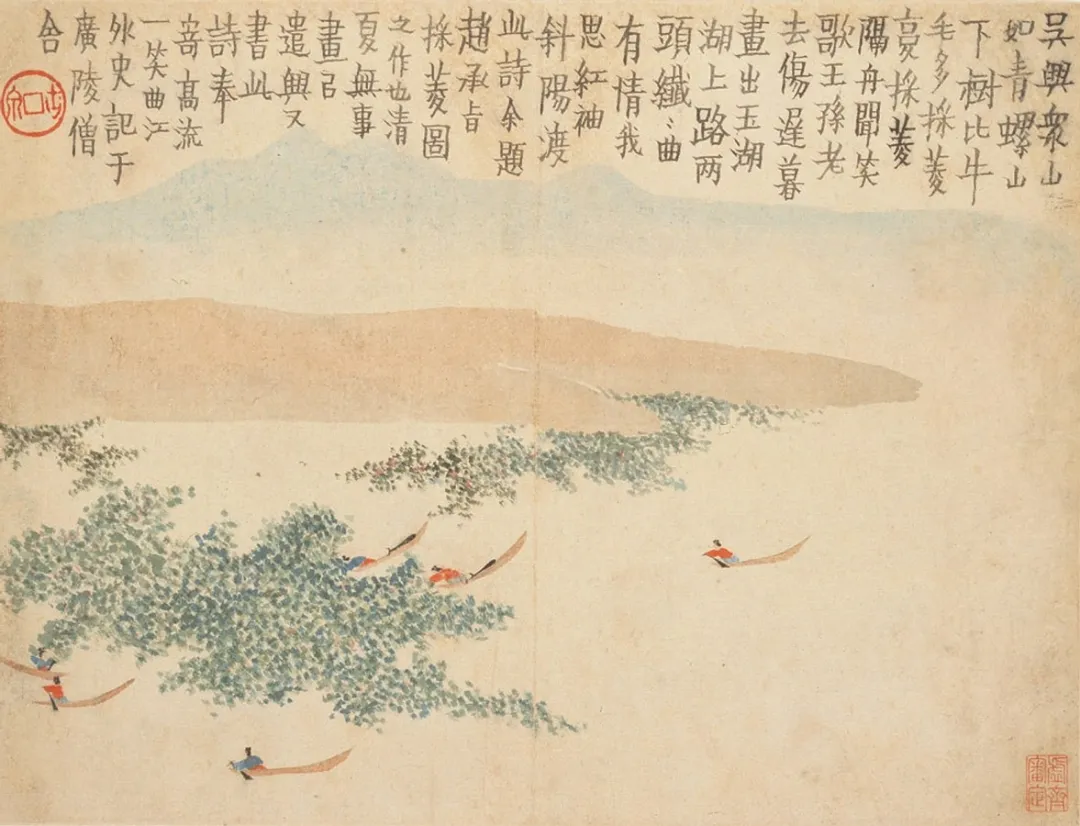 吳興衆山
如青螺山
下樹比牛
毛多採菱
復採菱
隔舟聞笑
歌王孫老
去傷遲暮
畫出玉湖
湖上路两
頭纖〻曲
有情我
思紅袖
斜陽渡
此詩余題
趙承旨
採菱圖
之作也清
夏無事
畫㠯
遣興又
書此
詩奉
寄高流
一笑曲江
外史記于
廣陵僧
舍
虛齋
審定